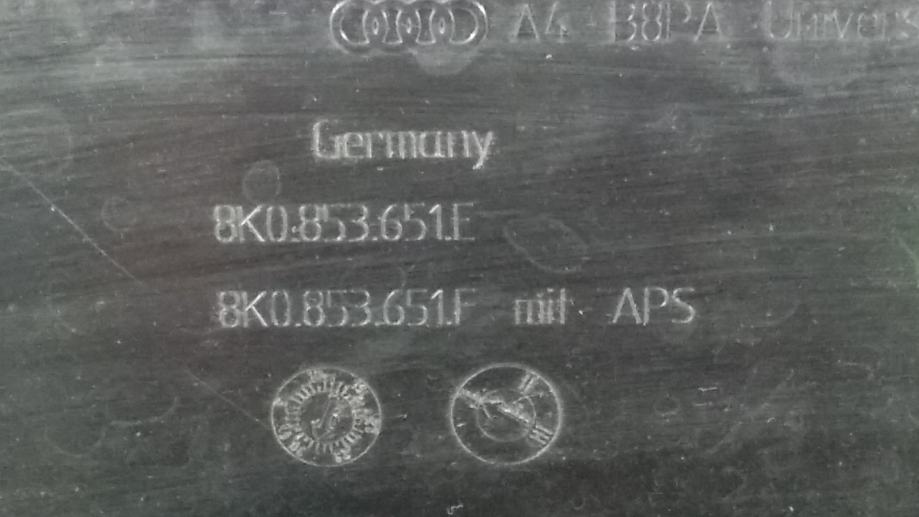 A4 B8PA Univers
Germany
8K0.853.651.E
8K0.853.651.F mit APS